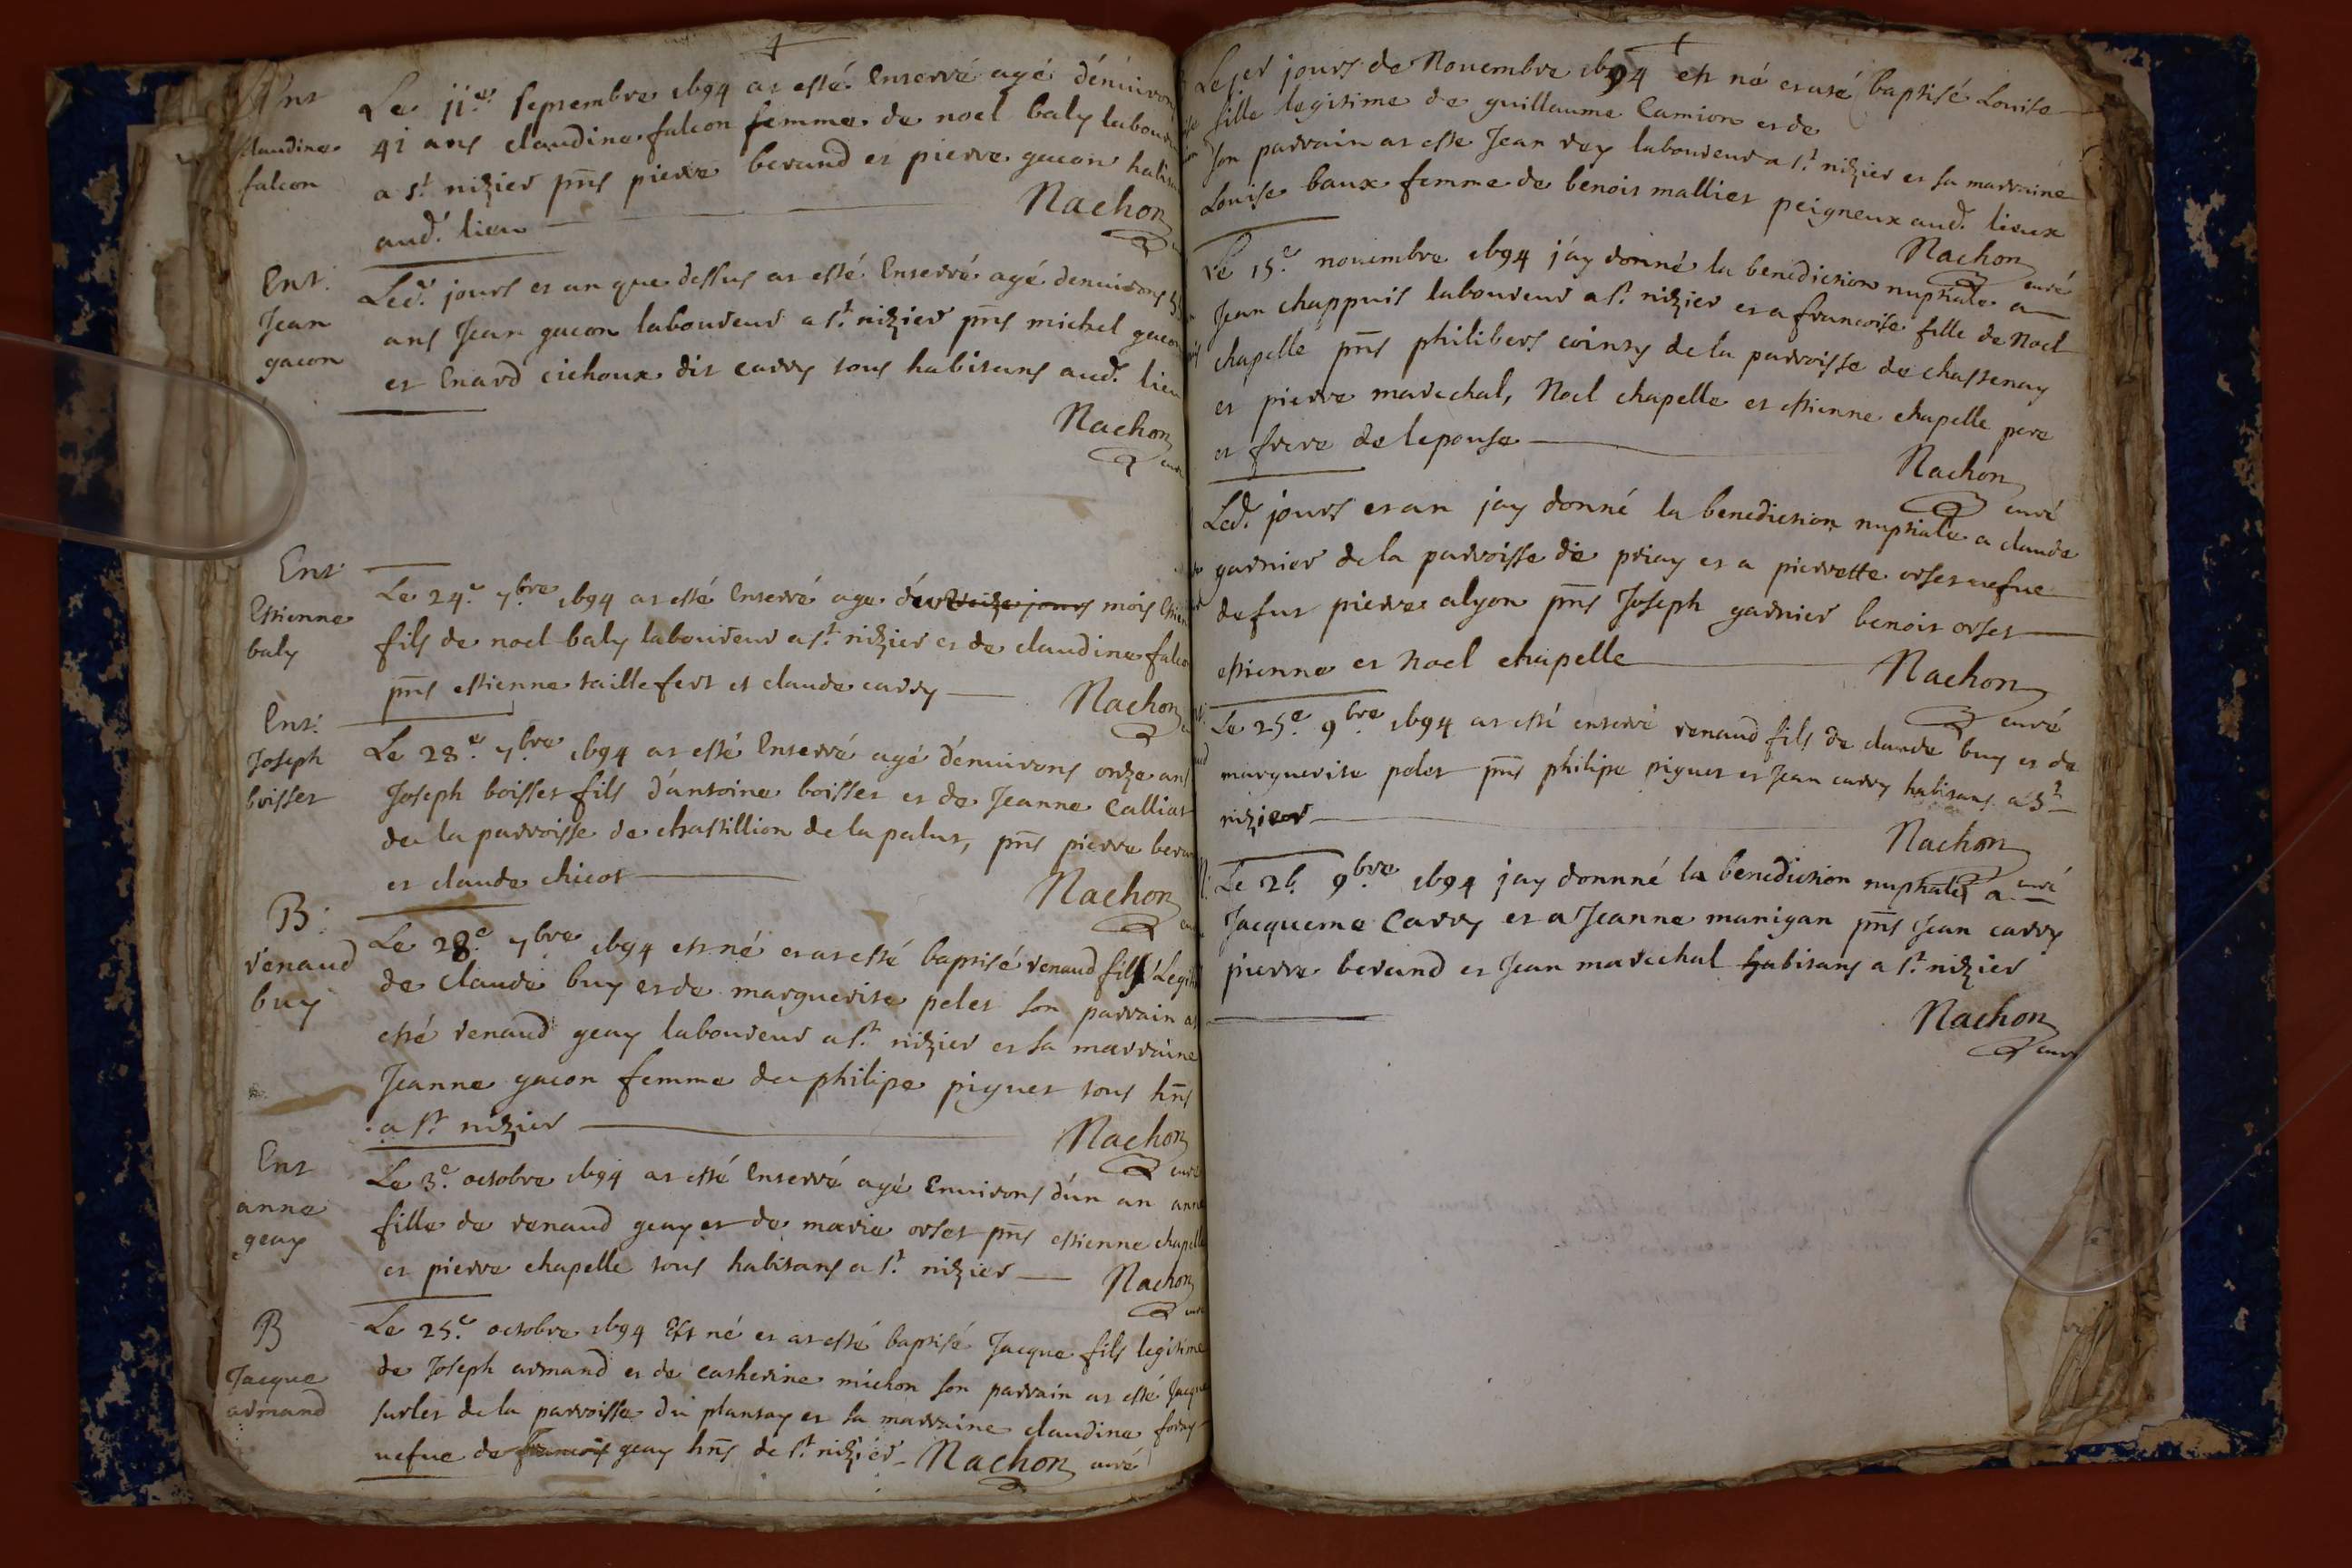 Ent
Claudine
falcon
Le 11e. septembre 1694 at esté Enterré agé d'énuiron
41 ans claudine falcon femme de noel baly labour
a st. nizier pns pierre beraud et pierre gacon habi
aud. lieu
Nachon
Ent.
Jean
gacon
Led. jours et an que dessus at esté Enterré agé denuirons
ans Jean gacon laboureur a st. nizier pns michel gacon
et Enard cichoux dit carry tous habitans aud. lieu
Nachon
Ent.
Estienne
baly
Le 24e. 7bre 1694 at esté Enterré age de treize jours mois Estien
fils de noel baly laboureur a st. nizier et de claudine falco
pns estienne taillefert et claude carry
Nachon
Ent.
Joseph
boisset
Le 28e. 7bre 1694 at esté Enterré agé d'énuirons onze ans
Joseph boisset fils d'antoine boisset et de Jeanne Calliat
de la parroisse de chastillion de la palut, pns pierre berau
et claude chicot
Nachon
B.
renaud
buy
Le 28e. 7bre 1694 est né et at esté baptisé renaud fils Legit
de claude buy et de marguerite pelet son parrain at
esté renaud geay laboureur a st. nizier et sa marraine
Jeanne gacon femme de philipe piguet tous hns
a st. nizier
Nachon
curé
Ent
anne
geay
Le 3e. octobre 1694 at esté Enterré agé Enuirons d'un an anne
fille de renaud geay et de marie orset pns estienne chapelle
et pierre chapelle tous habitans a st. nizier
Nachon
curé
B
Jacque
armand
Le 25e. octobre 1694 Est né et at esté baptisé Jacque fils legitime
de Joseph armand et de catherine michon son parrain at esté Jacque
surlet de la parroisse du plantay et sa marraine claudine foray
uefue de francois geay hns de st. nizier
Nachon curé
Le 1er jours de Nouembre 1694 est né et até baptisé Louise
fille legitime de guillaume Camion et de
son parrain at esté Jean rey laboureur a st. nizier et sa marraine
Louise baux femme de benoit mallier peigneux aud. lieux
Nachon
curé
Le 15e. nouembre 1694 j'ay donné la benediction nuptiale a
Jean chappuis laboureur a st. nizier et a francoise fille de Noel
chapelle pns philibert cointy de la parroisse de chastenay
et pierre marechal, Noel chapelle et estienne chapelle pere
et frere de lepouse
Nachon
curé
Led. jours et an jay donné la benediction nuptiale a claude
garnier de la parroisse de priay et a pierrette orset uefue
defut pierre alyon pns Joseph garnier benoit orset
estienne et Noel chapelle
Nachon
curé
Le 25e. 9bre 1694 at esté enterré renaud fils de claude buy et de
marguerite pelet pns philipe piguet et Jean carry habitans a st
nizier
Nachon
curé
Le 26. 9bre 1694 jay donnné la benediction nuptiale a
Jacqueme Carry et a Jeanne manigan pns Jean carry
pierre beraud et Jean marechal habitans a st. nizier
Nachon
curé